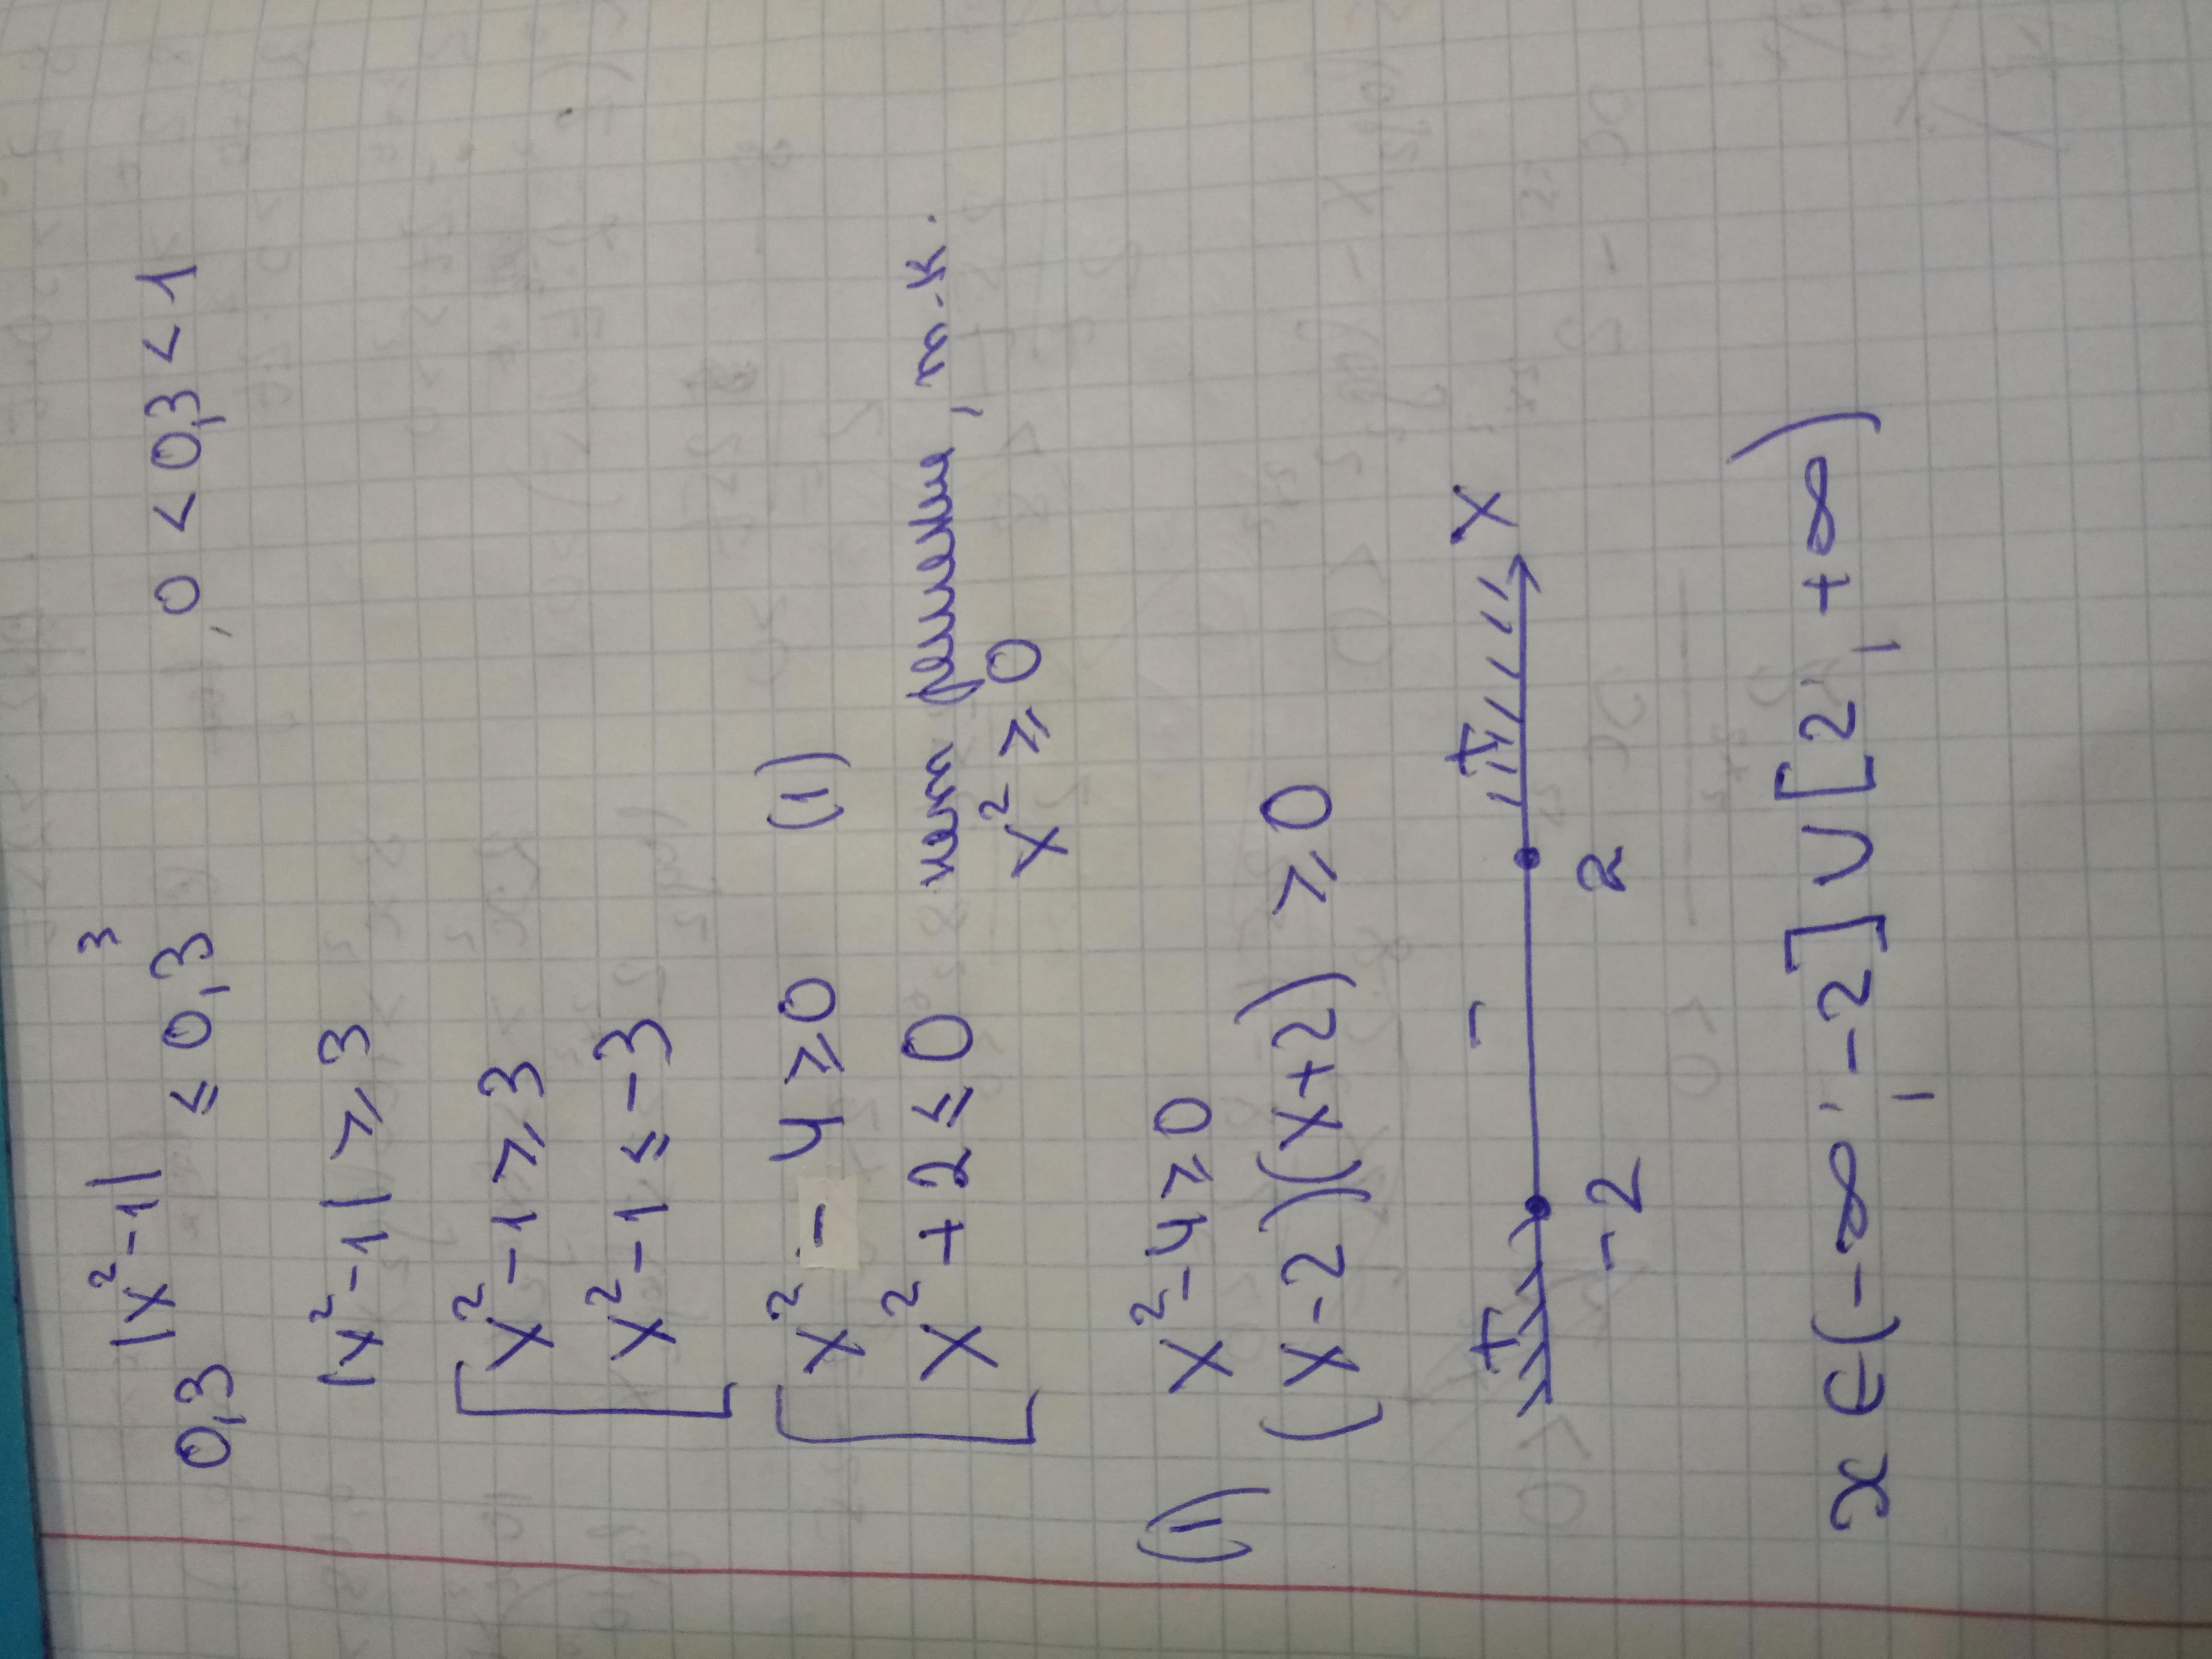 0,3^|x²-1| ≤ 0,3³, 0 < 0,3 < 1
|x²-1| ≥ 3
[ x²-1 ≥ 3
x²-1 ≤ -3
[ x² - 4 ≥ 0 (1)
x² + 2 ≤ 0 нет решений, т.к.
x² ≥ 0
(1) x²-4 ≥ 0
(x-2)(x+2) ≥ 0
+ - + x
-2 2
x ∈ (-∞; -2] ∪ [2; +∞)